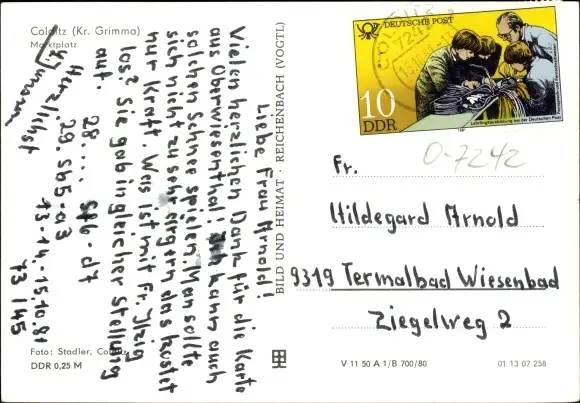 Colditz (Kr. Grimma)
Marktplatz
Liebe Frau Arnold!
Vielen herzlichen Dank für die Karte
aus Oberwiesenthal! Ich kann auch
solchen Schnee spielen. Man sollte
sich nicht zu sehr ärgern das kostet
nur Kraft. Was ist mit Fr. Jlzig
los? Sie gab in gleicher Stellung
auf.
28.... Sf6-d7
29. Sb5-a3
Herzlichst
13.-14.-15.10.81
73/45
Foto: Stadler, Colditz
DDR 0,25 M
BILD UND HEIMAT · REICHENBACH (VOGTL)
COLDITZ
7242
DEUTSCHE POST
10
DDR
Lehrlingsausbildung bei der Deutschen Post
0-7242
Fr.
Hildegard Arnold
9319 Termalbad Wiesenbad
Ziegelweg 2
V 11 50 A 1/B 700/80
01 13 07 258